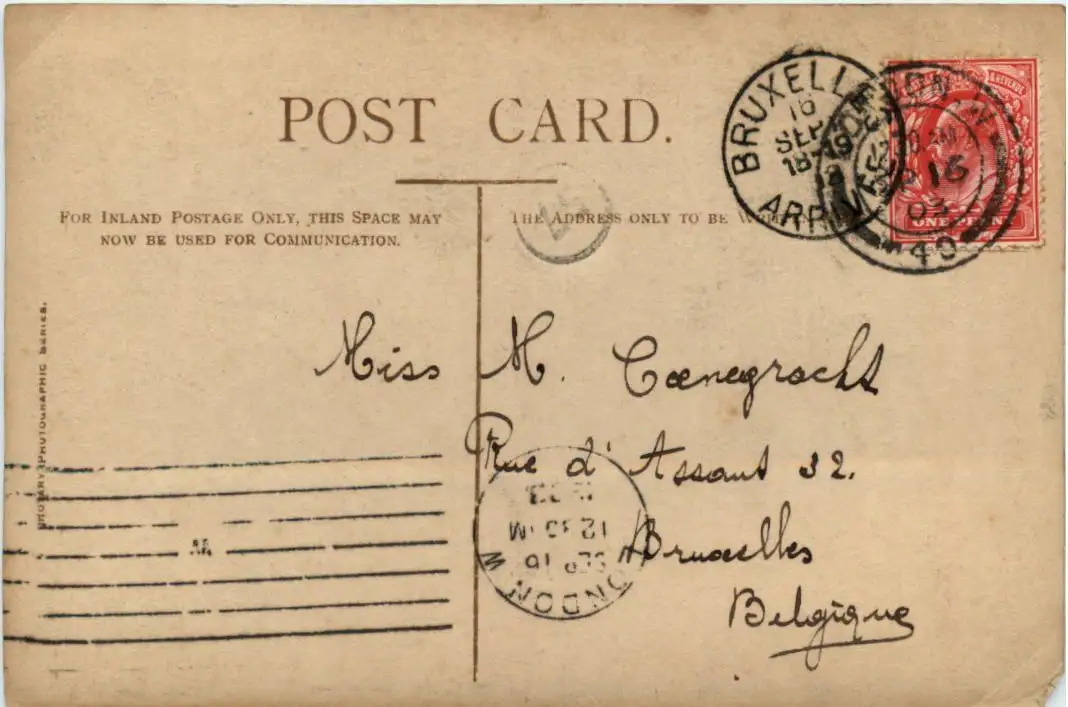 POST CARD.
FOR INLAND POSTAGE ONLY, THIS SPACE MAY
NOW BE USED FOR COMMUNICATION.
THE ADDRESS ONLY TO BE
BRUXELLES
16
SEPT
18-19
ARRIVÉE
SP 16
03
40
ONE PENNY
& REVENUE
Miss M. Coenegracht
Rue d'Assaut 32.
Bruxelles
Belgique
ROTARY PHOTOGRAPHIC SERIES.
LONDON W
SEP 16
12 30 AM